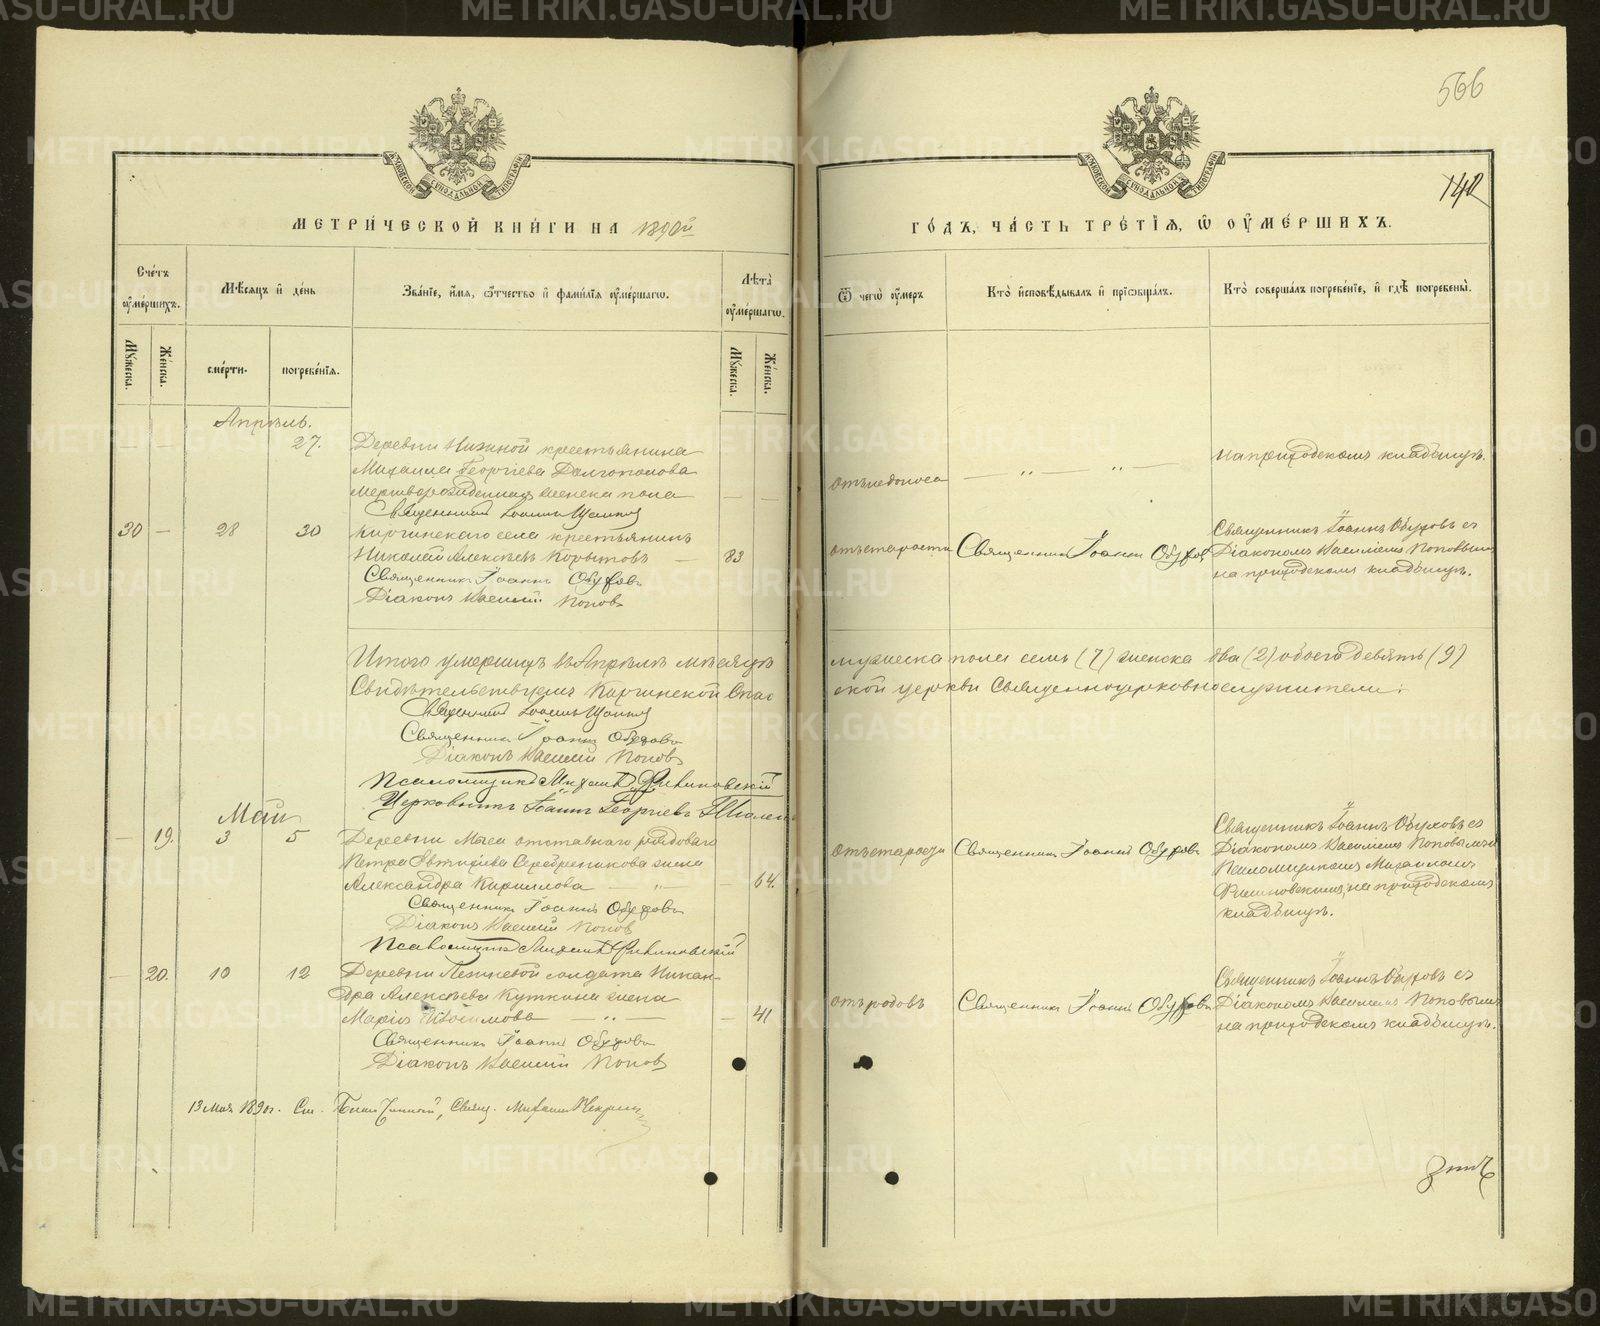 566
142
МЕТРИЧЕСКОЙ КНИГИ НА 1890й
ГОДЪ, ЧАСТЬ ТРЕТІЯ, Ѿ ОУМЕРШИХЪ.
Счетъ оумершихъ.
Мѣсяцъ и день
Званіе, имя, отчество и фамилія оумершаго.
Лѣта оумершаго.
Ѿ чего оумеръ
Кто исповѣдывалъ и пріобщалъ.
Кто совершалъ погребеніе, и гдѣ погребены.
Мужеска.
Женска.
смерти.
погребенія.
Мужеска.
Женска.
Апрѣль.
27. Деревни Нижной крестьянина
Михаила Георгіева Долгополова
мертворожденная женска пола
отъ недоноса
на приходскомъ кладбищѣ.
Священникъ Іоаннъ
30 — 28 30 Киргинскаго села крестьянинъ
Николай Алексѣевъ Корытовъ — 83
отъ старости Священникъ Іоаннъ Обуховъ
Священникъ Іоаннъ Обуховъ съ
Діакономъ Василіемъ Поповымъ
на приходскомъ кладбищѣ.
Священникъ Іоаннъ Обуховъ
Діаконъ Василій Поповъ
Итого умершихъ въ Апрѣлѣ мѣсяцѣ мужеска пола семь (7) женска два (2) обоего девять (9)
Свидѣтельствуемъ Киргинской Спасской церкви Священноцерковнослужители:
Священникъ Іоаннъ
Священникъ Іоаннъ Обуховъ
Діаконъ Василій Поповъ
Псаломщикъ Михаилъ
Церковникъ Іоаннъ Георгіевъ
Май
— 19. 3 5 Деревни Мыса отставнаго рядоваго
Петра Евтихіева Серебреникова жена
Александра Кириллова — „ — — 64.
отъ старости Священникъ Іоаннъ Обуховъ
Священникъ Іоаннъ Обуховъ съ
Діакономъ Василіемъ Поповымъ и
Псаломщикомъ Михаиломъ
на приходскомъ
кладбищѣ.
Священникъ Іоаннъ Обуховъ
Діаконъ Василій Поповъ
Псаломщикъ Михаилъ
— 20. 10 12 Деревни солдата Никан-
дра Алексѣева Куткина жена
Марія — „ — — 41
отъ родовъ Священникъ Іоаннъ Обуховъ
Священникъ Іоаннъ Обуховъ съ
Діакономъ Василіемъ Поповымъ
на приходскомъ кладбищѣ.
Священникъ Іоаннъ Обуховъ
Діаконъ Василій Поповъ
13 Мая 1890г. См. Благочинный, Свящ. Михаилъ
METRIKI.GASO-URAL.RU